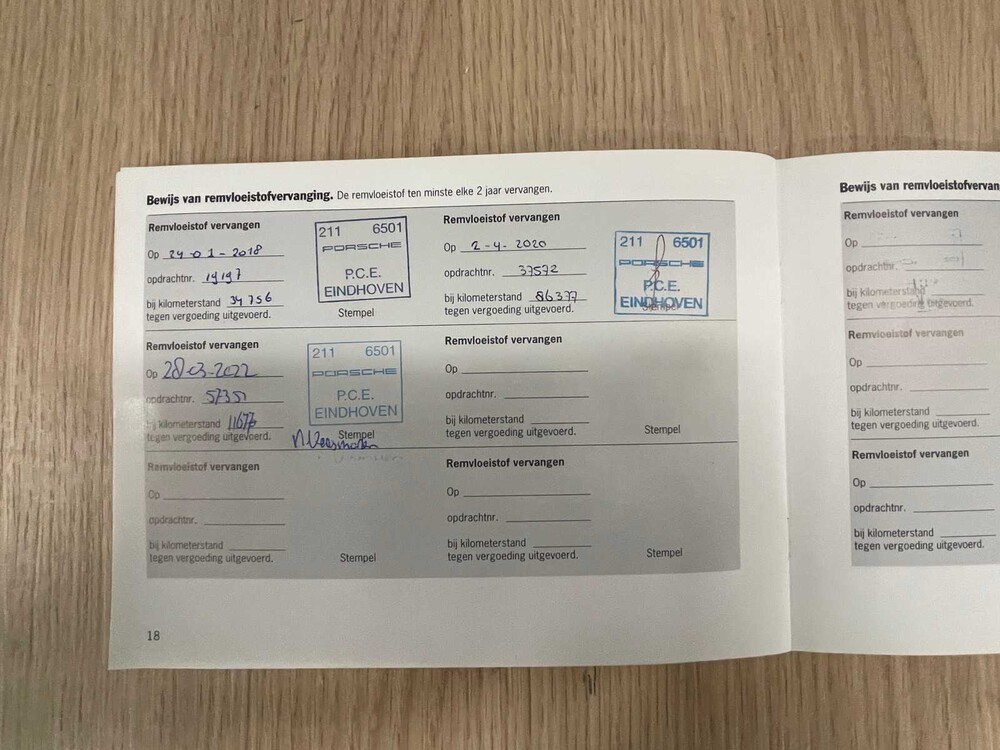 Bewijs van remvloeistofvervanging. De remvloeistof ten minste elke 2 jaar vervangen.
Remvloeistof vervangen
Op 24-01-2018
opdrachtnr. 19197
bij kilometerstand 34756
tegen vergoeding uitgevoerd.
211 6501
PORSCHE
P.C.E.
EINDHOVEN
Stempel
Remvloeistof vervangen
Op 2-4-2020
opdrachtnr. 37572
bij kilometerstand 86377
tegen vergoeding uitgevoerd.
211 6501
PORSCHE
P.C.E.
EINDHOVEN
Stempel
Remvloeistof vervangen
Op 28-03-2022
opdrachtnr. 57351
bij kilometerstand
tegen vergoeding uitgevoerd.
211 6501
PORSCHE
P.C.E.
EINDHOVEN
Stempel
Remvloeistof vervangen
Op
opdrachtnr.
bij kilometerstand
tegen vergoeding uitgevoerd.
Stempel
Remvloeistof vervangen
Op
opdrachtnr.
bij kilometerstand
tegen vergoeding uitgevoerd.
Stempel
Remvloeistof vervangen
Op
opdrachtnr.
bij kilometerstand
tegen vergoeding uitgevoerd.
Stempel
18
Bewijs van remvloeistofvervan
Remvloeistof vervangen
Op
opdrachtnr.
bij kilometerstand
tegen vergoeding uitgevoerd.
Remvloeistof vervangen
Op
opdrachtnr.
bij kilometerstand
tegen vergoeding uitgevoerd.
Remvloeistof vervangen
Op
opdrachtnr.
bij kilometerstand
tegen vergoeding uitgevoerd.